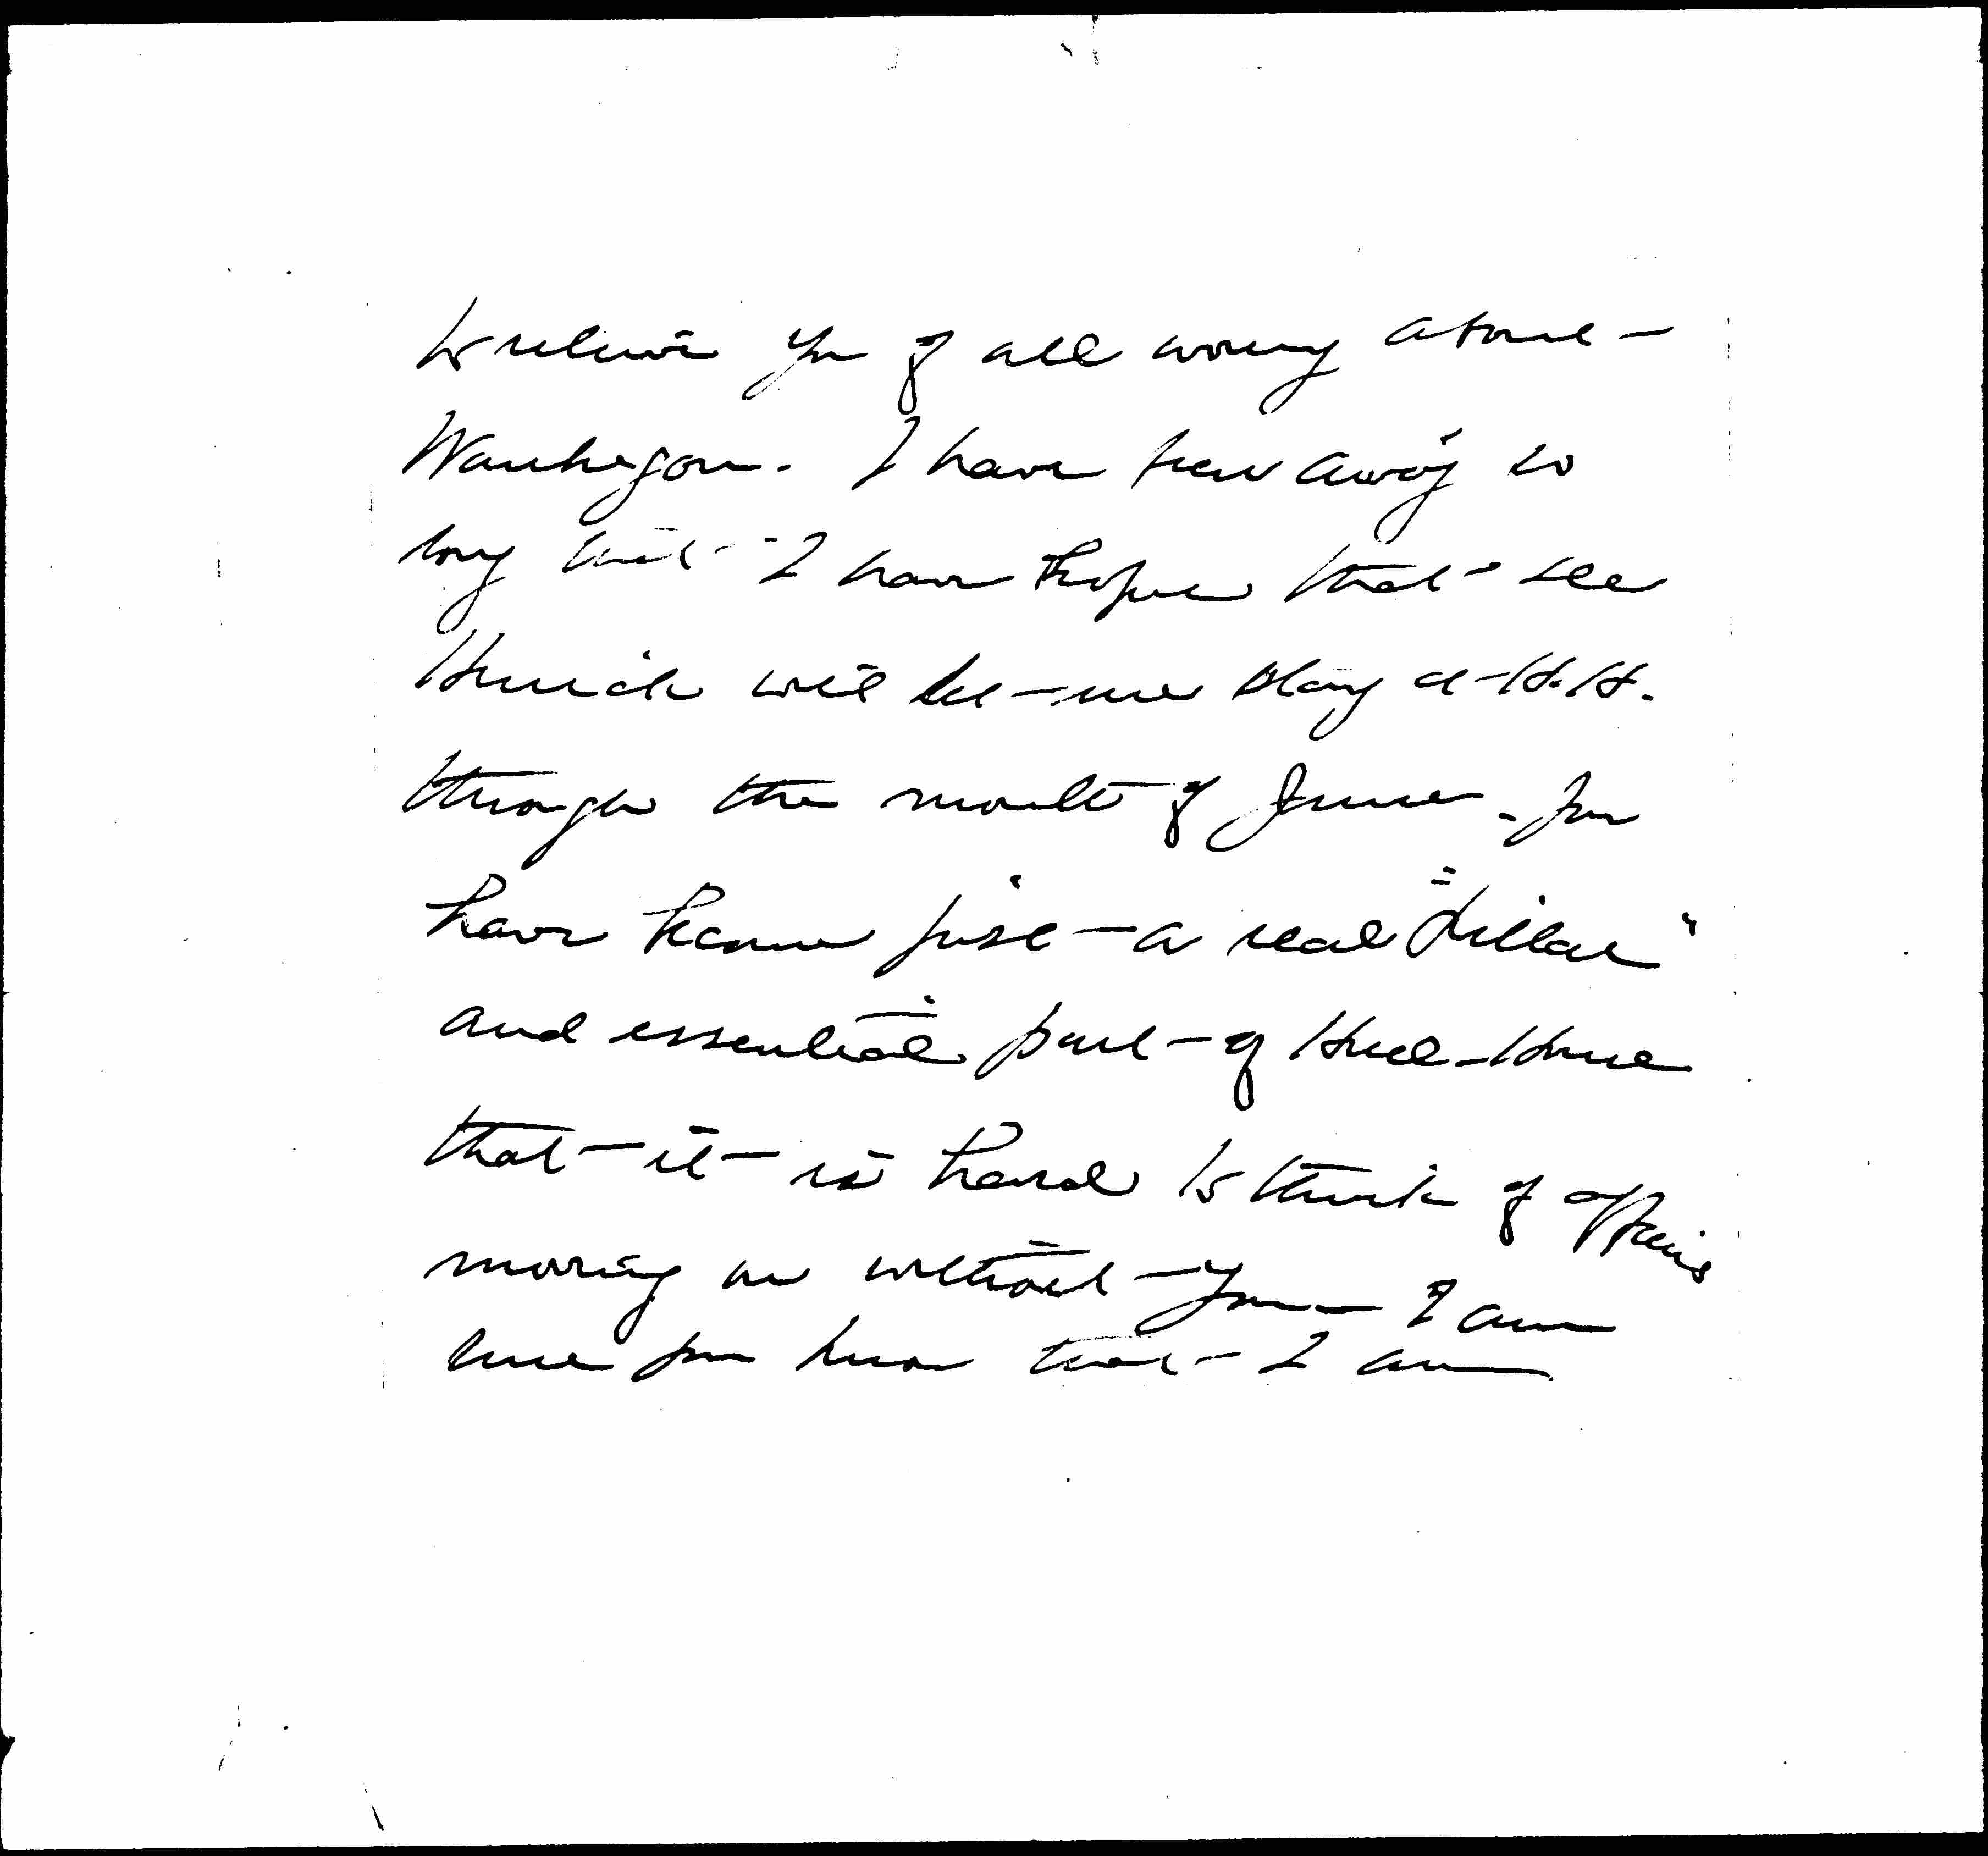 to relieve you of all worry about -
Waukegan. I have been away so
long that - I have hope that - 
will let - me stay at - H.H.
through the month of June. You
have become just - a real "pillar"
and essential part - of Hull-House
that - it - is hard to think of affairs
moving on without - you - I am
sure you know that - I am